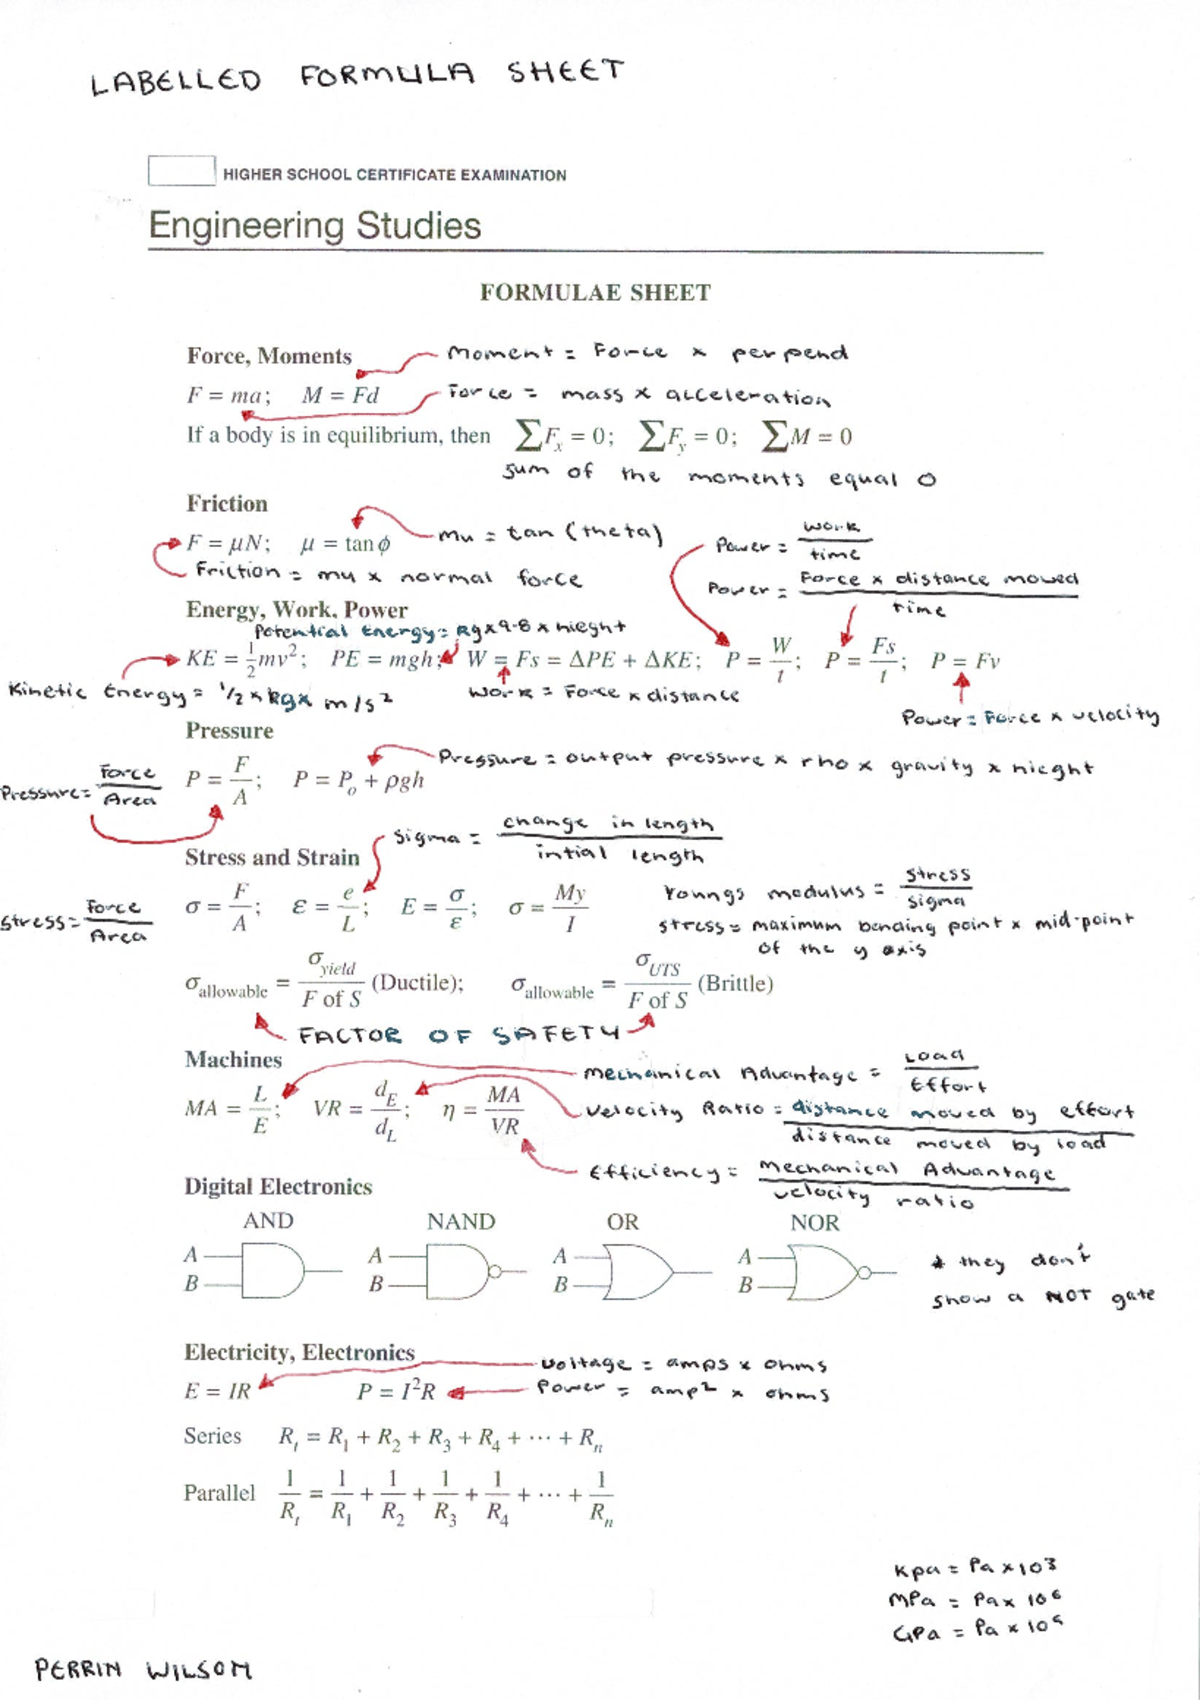 LABELLED FORMULA SHEET
HIGHER SCHOOL CERTIFICATE EXAMINATION
Engineering Studies
FORMULAE SHEET
Force, Moments
Moment = Force x perpend
F = ma; M = Fd
Force = mass x acceleration
If a body is in equilibrium, then ∑Fx = 0; ∑Fy = 0; ∑M = 0
sum of the moments equal 0
Friction
F = μN; μ = tan φ
mu = tan (theta)
Friction = mu x normal force
Power = work / time
Power = Force x distance moved / time
Energy, Work, Power
Potential Energy = Kg x 9.8 x hieght
KE = 1/2 mv²; PE = mgh; W = Fs = ΔPE + ΔKE; P = W/t; P = Fs/t; P = Fv
Kinetic Energy = 1/2 x kg x m/s²
Work = Force x distance
Power = Force x velocity
Pressure
Pressure = output pressure x rho x gravity x hieght
Pressure = Force / Area
P = F/A; P = Po + ρgh
Sigma = change in length / intial length
Stress and Strain
Stress = Force / Area
σ = F/A; ε = e/L; E = σ/ε; σ = My/I
Youngs modulus = stress / sigma
stress = maximum bending point x mid-point of the y axis
σallowable = σyield / F of S (Ductile); σallowable = σUTS / F of S (Brittle)
FACTOR OF SAFETY
Machines
Mechanical Advantage = Load / Effort
MA = L/E; VR = dE/dL; η = MA/VR
Velocity Ratio = distance moved by effort / distance moved by load
Efficiency = Mechanical Advantage / velocity ratio
Digital Electronics
AND NAND OR NOR
A A A A
B B B B
* they don't
show a NOT gate
Electricity, Electronics
Voltage = amps x ohms
E = IR P = I²R
Power = amp² x ohms
Series Rt = R1 + R2 + R3 + R4 + ··· + Rn
Parallel 1/Rt = 1/R1 + 1/R2 + 1/R3 + 1/R4 + ··· + 1/Rn
Kpa = Pa x 10³
MPa = Pa x 10⁶
GPa = Pa x 10⁹
PERRIN WILSON